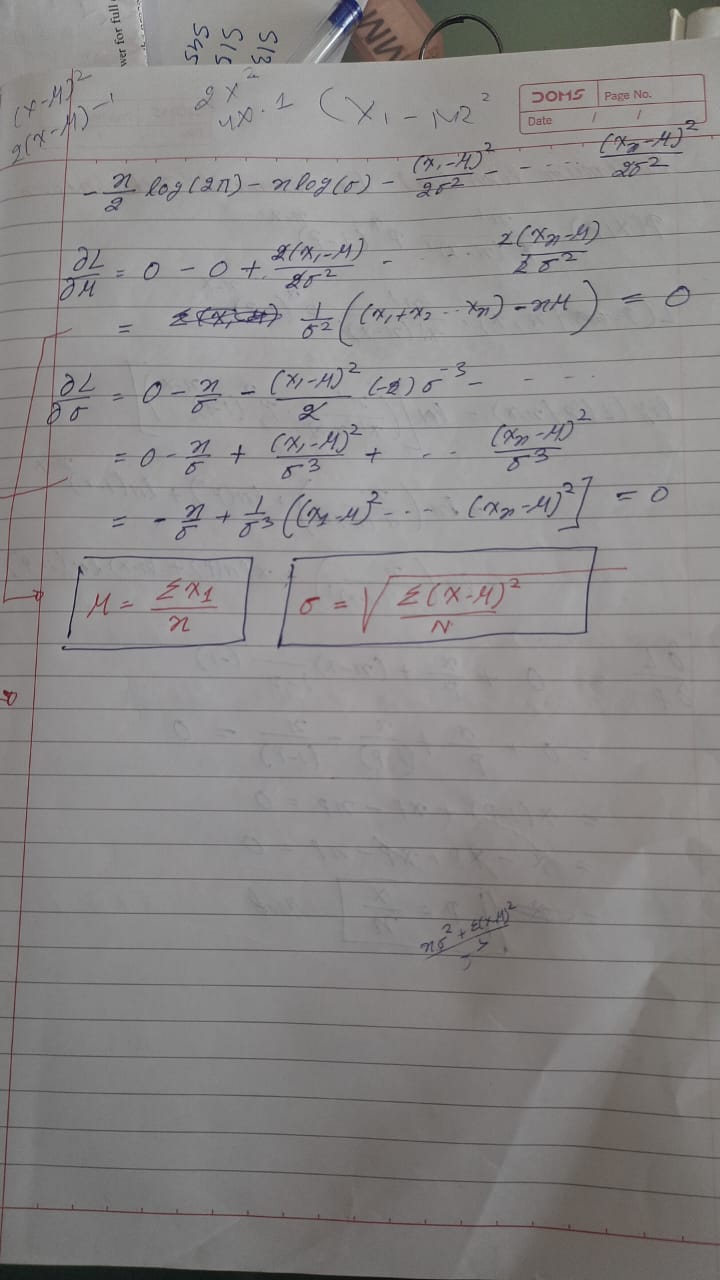 wer for full
MINI
513
515
545
(x-μ)²
2(x-μ)⁻¹
2x²
4x.1
(x₁ - μ)²
DOMS Page No.
Date / /
-n/2 log(2π) - n log(σ) - (x₁-μ)²/2σ² - - ... (xₙ-μ)²/2σ²
∂L/∂μ = 0 - 0 + 2(x₁-μ)/2σ² - .. 2(xₙ-μ)/2σ²
= 1/σ² ((x₁+x₂ ... xₙ) - nμ) = 0
∂L/∂σ = 0 - n/σ - (x₁-μ)²/2 (-2) σ⁻³ - - . - .
= 0 - n/σ + (x₁-μ)²/σ³ + . . . (xₙ-μ)²/σ³
= - n/σ + 1/σ³ ((x₁-μ)² - . - . (xₙ-μ)²] = 0
μ = Σx₁/n
σ = √Σ(x-μ)²/N